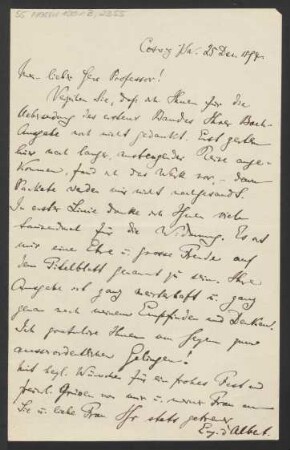 55 Nachl 100 / B, 2555
Coswig i/Sa. 25 Dez. 1894.
Mein lieber Herr Professor!
Verzeihen Sie, daß ich Ihnen für die
Uebersendung des ersten Bandes Ihrer Bach-
Ausgabe noch nicht gedankt. Erst gestern
hier nach langer, anstrengender Reise ange-
kommen, fand ich das Werk vor, – denn
Packete werden mir nicht nachgesandt.
In erster Linie danke ich Ihnen viel
tausendmal für die Widmung. Es ist
mir eine Ehre u. grosse Freude auf
dem Titelblatt genannt zu sein. Ihre
Ausgabe ist ganz meisterhaft u. ganz
genau nach meinem Empfinden und Denken.
Ich gratulire Ihnen von Herzen zum
ausserordentlichen Gelingen!
Mit herzl. Wünschen für ein frohes Fest und
freundl. Grüßen von mir u. meiner Frau an
Sie u. liebe Frau Ihr stets getreuer
Eug. d'Albert.